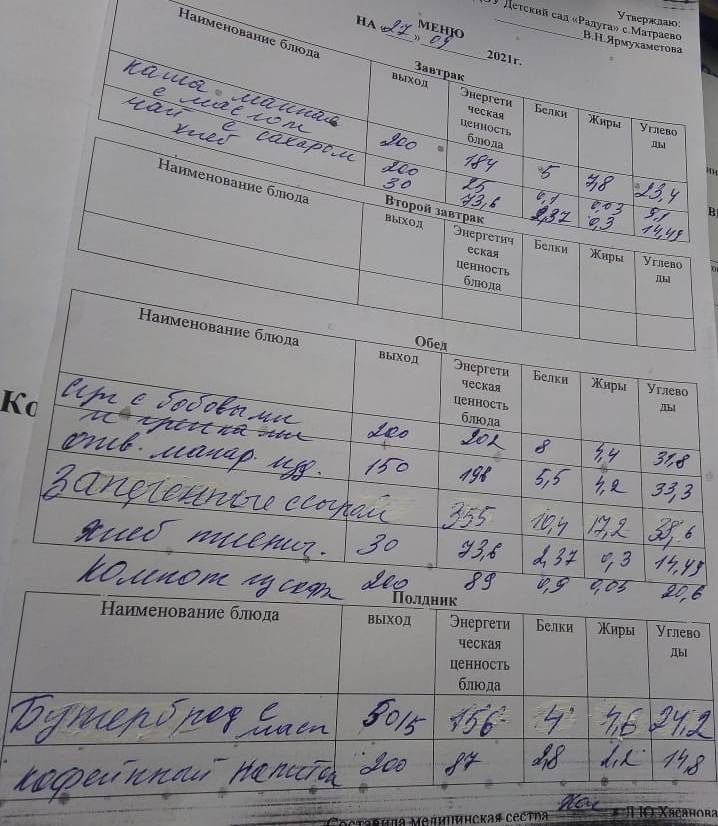 Детский сад «Радуга» с.Матраево
Утверждаю:
В.Н.Ярмухаметова
МЕНЮ
НА 27 » 09 2021г.
Завтрак
Наименование блюда выход Энергети ческая ценность блюда Белки Жиры Углево ды
каша манная
с маслом 200 184 5 7,8 23,4
чай с сахаром 200 25 0,1 0,03 9,1
хлеб 30 73,6 2,37 0,3 14,49
Второй завтрак
Наименование блюда выход Энергетич еская ценность блюда Белки Жиры Углево ды
Обед
Наименование блюда выход Энергети ческая ценность блюда Белки Жиры Углево ды
суп с бобовыми
и гренками 200 202 8 4,4 31,8
отв. макар. изд. 150 198 5,5 4,2 33,3
Запеченные с сыром 355 10,4 17,2 38,6
хлеб пшенич. 30 73,6 2,37 0,3 14,49
компот 200 89 0,9 0,05 20,6
Полдник
Наименование блюда выход Энергети ческая ценность блюда Белки Жиры Углево ды
Бутерброд с масл 50/5 156 4 4,6 24,2
кофейный напиток 200 87 2,8 2,2 14,8
Составила медицинская сестра Л.Ю.Хасанова
Ко